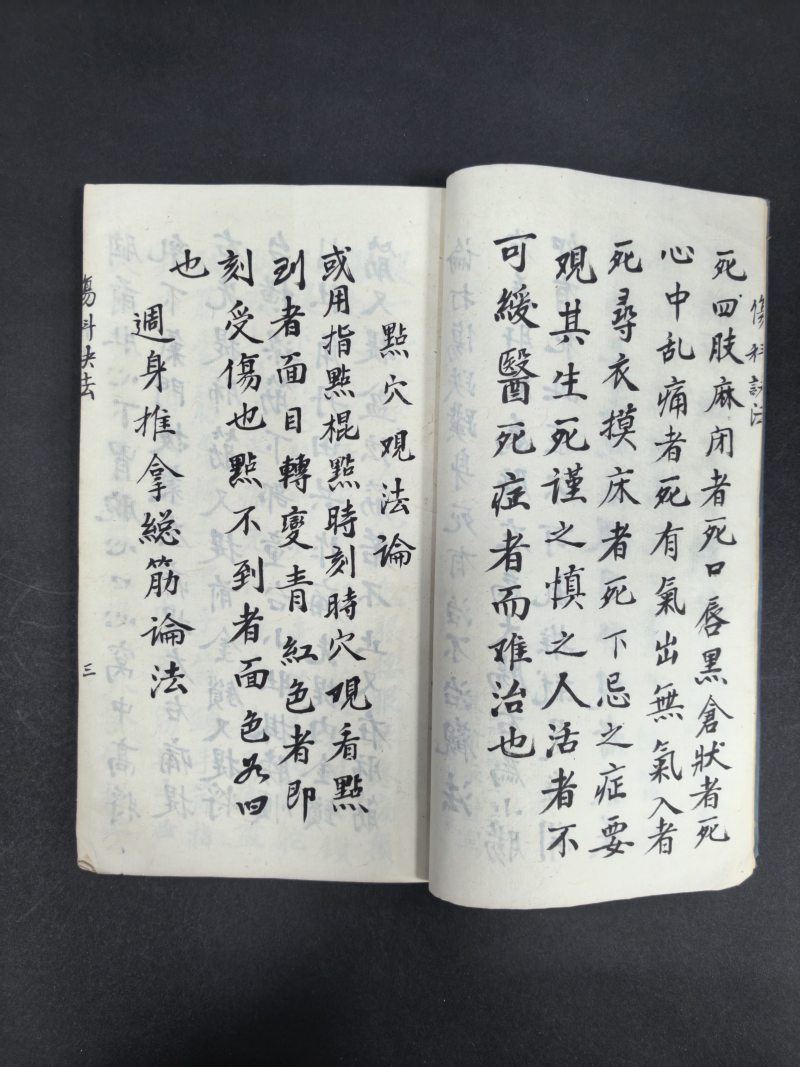 傷科訣法
死四肢麻闭者死口唇黑倉狀者死
心中乱痛者死有氣出無氣入者
死尋衣摸床者死下忌之症要
观其生死谨之慎之人活者不
可緩醫死症者而难治也
點穴观法論
或用指點棍點時刻時穴观看點
到者面目轉变青紅色者即
刻受傷也點不到者面色如旧
也
週身推拿総筋論法
傷科决法
三